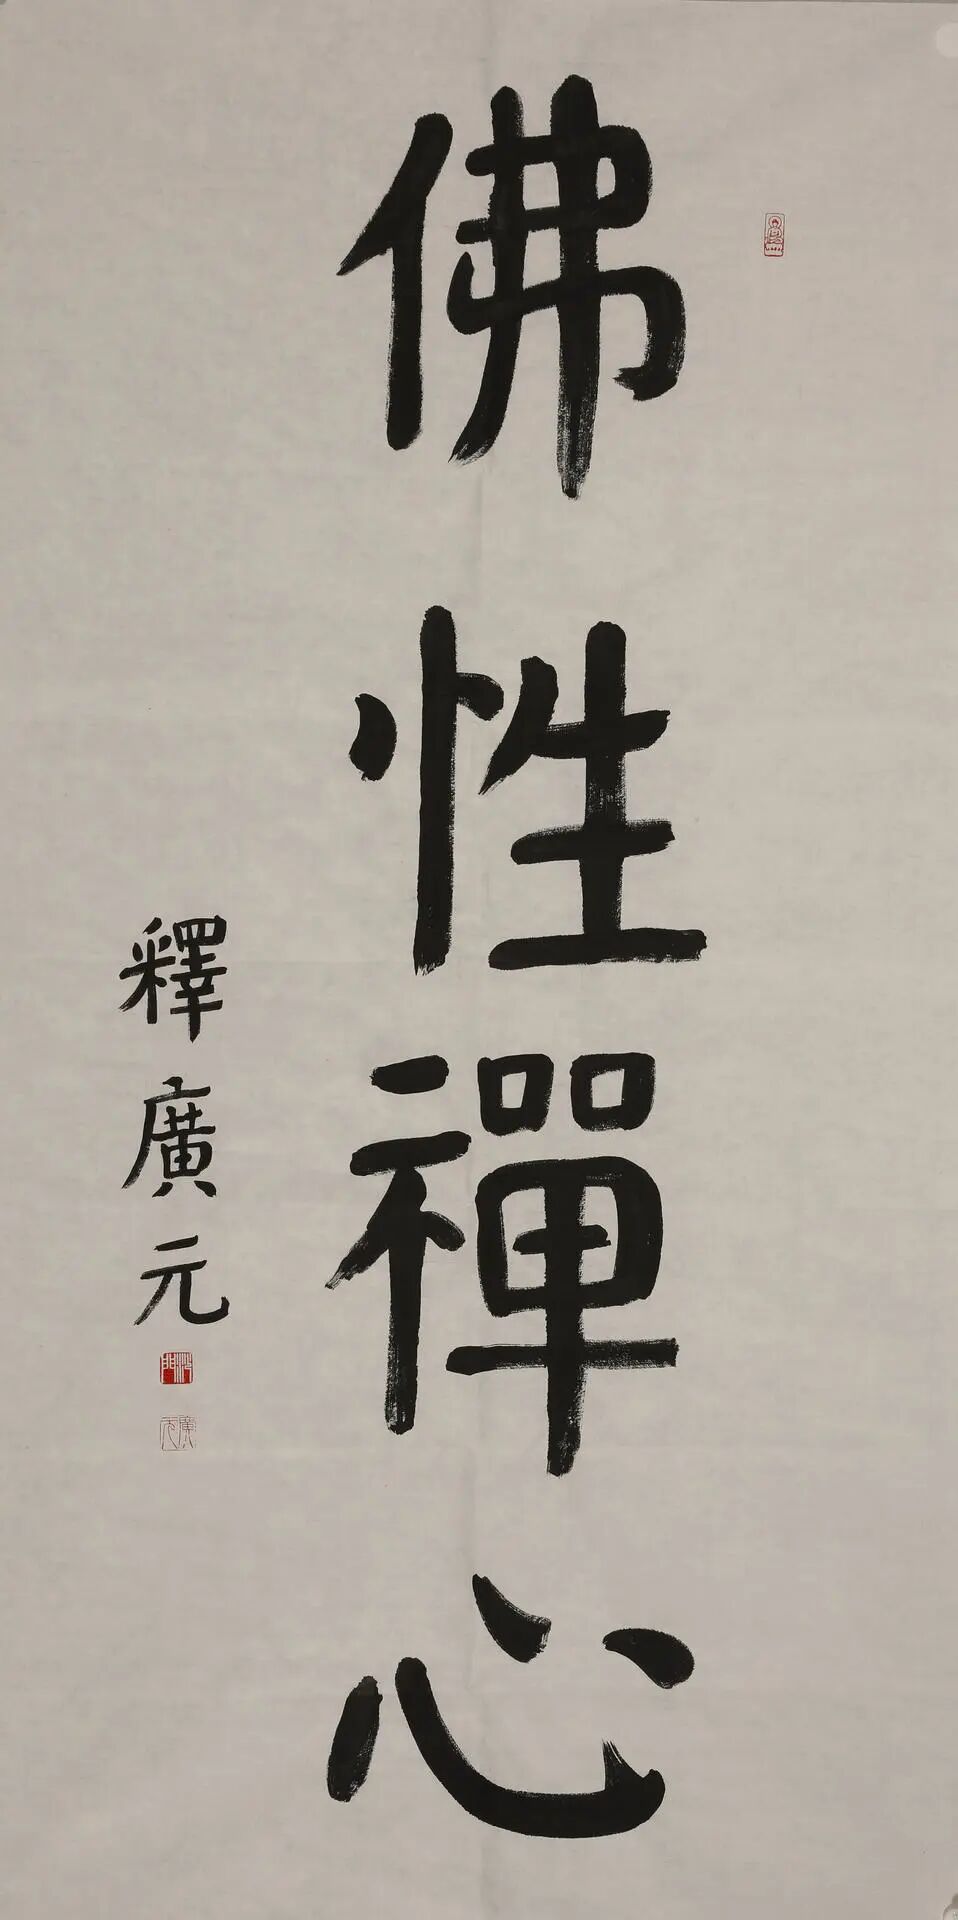 佛性禪心
釋廣元
廣元